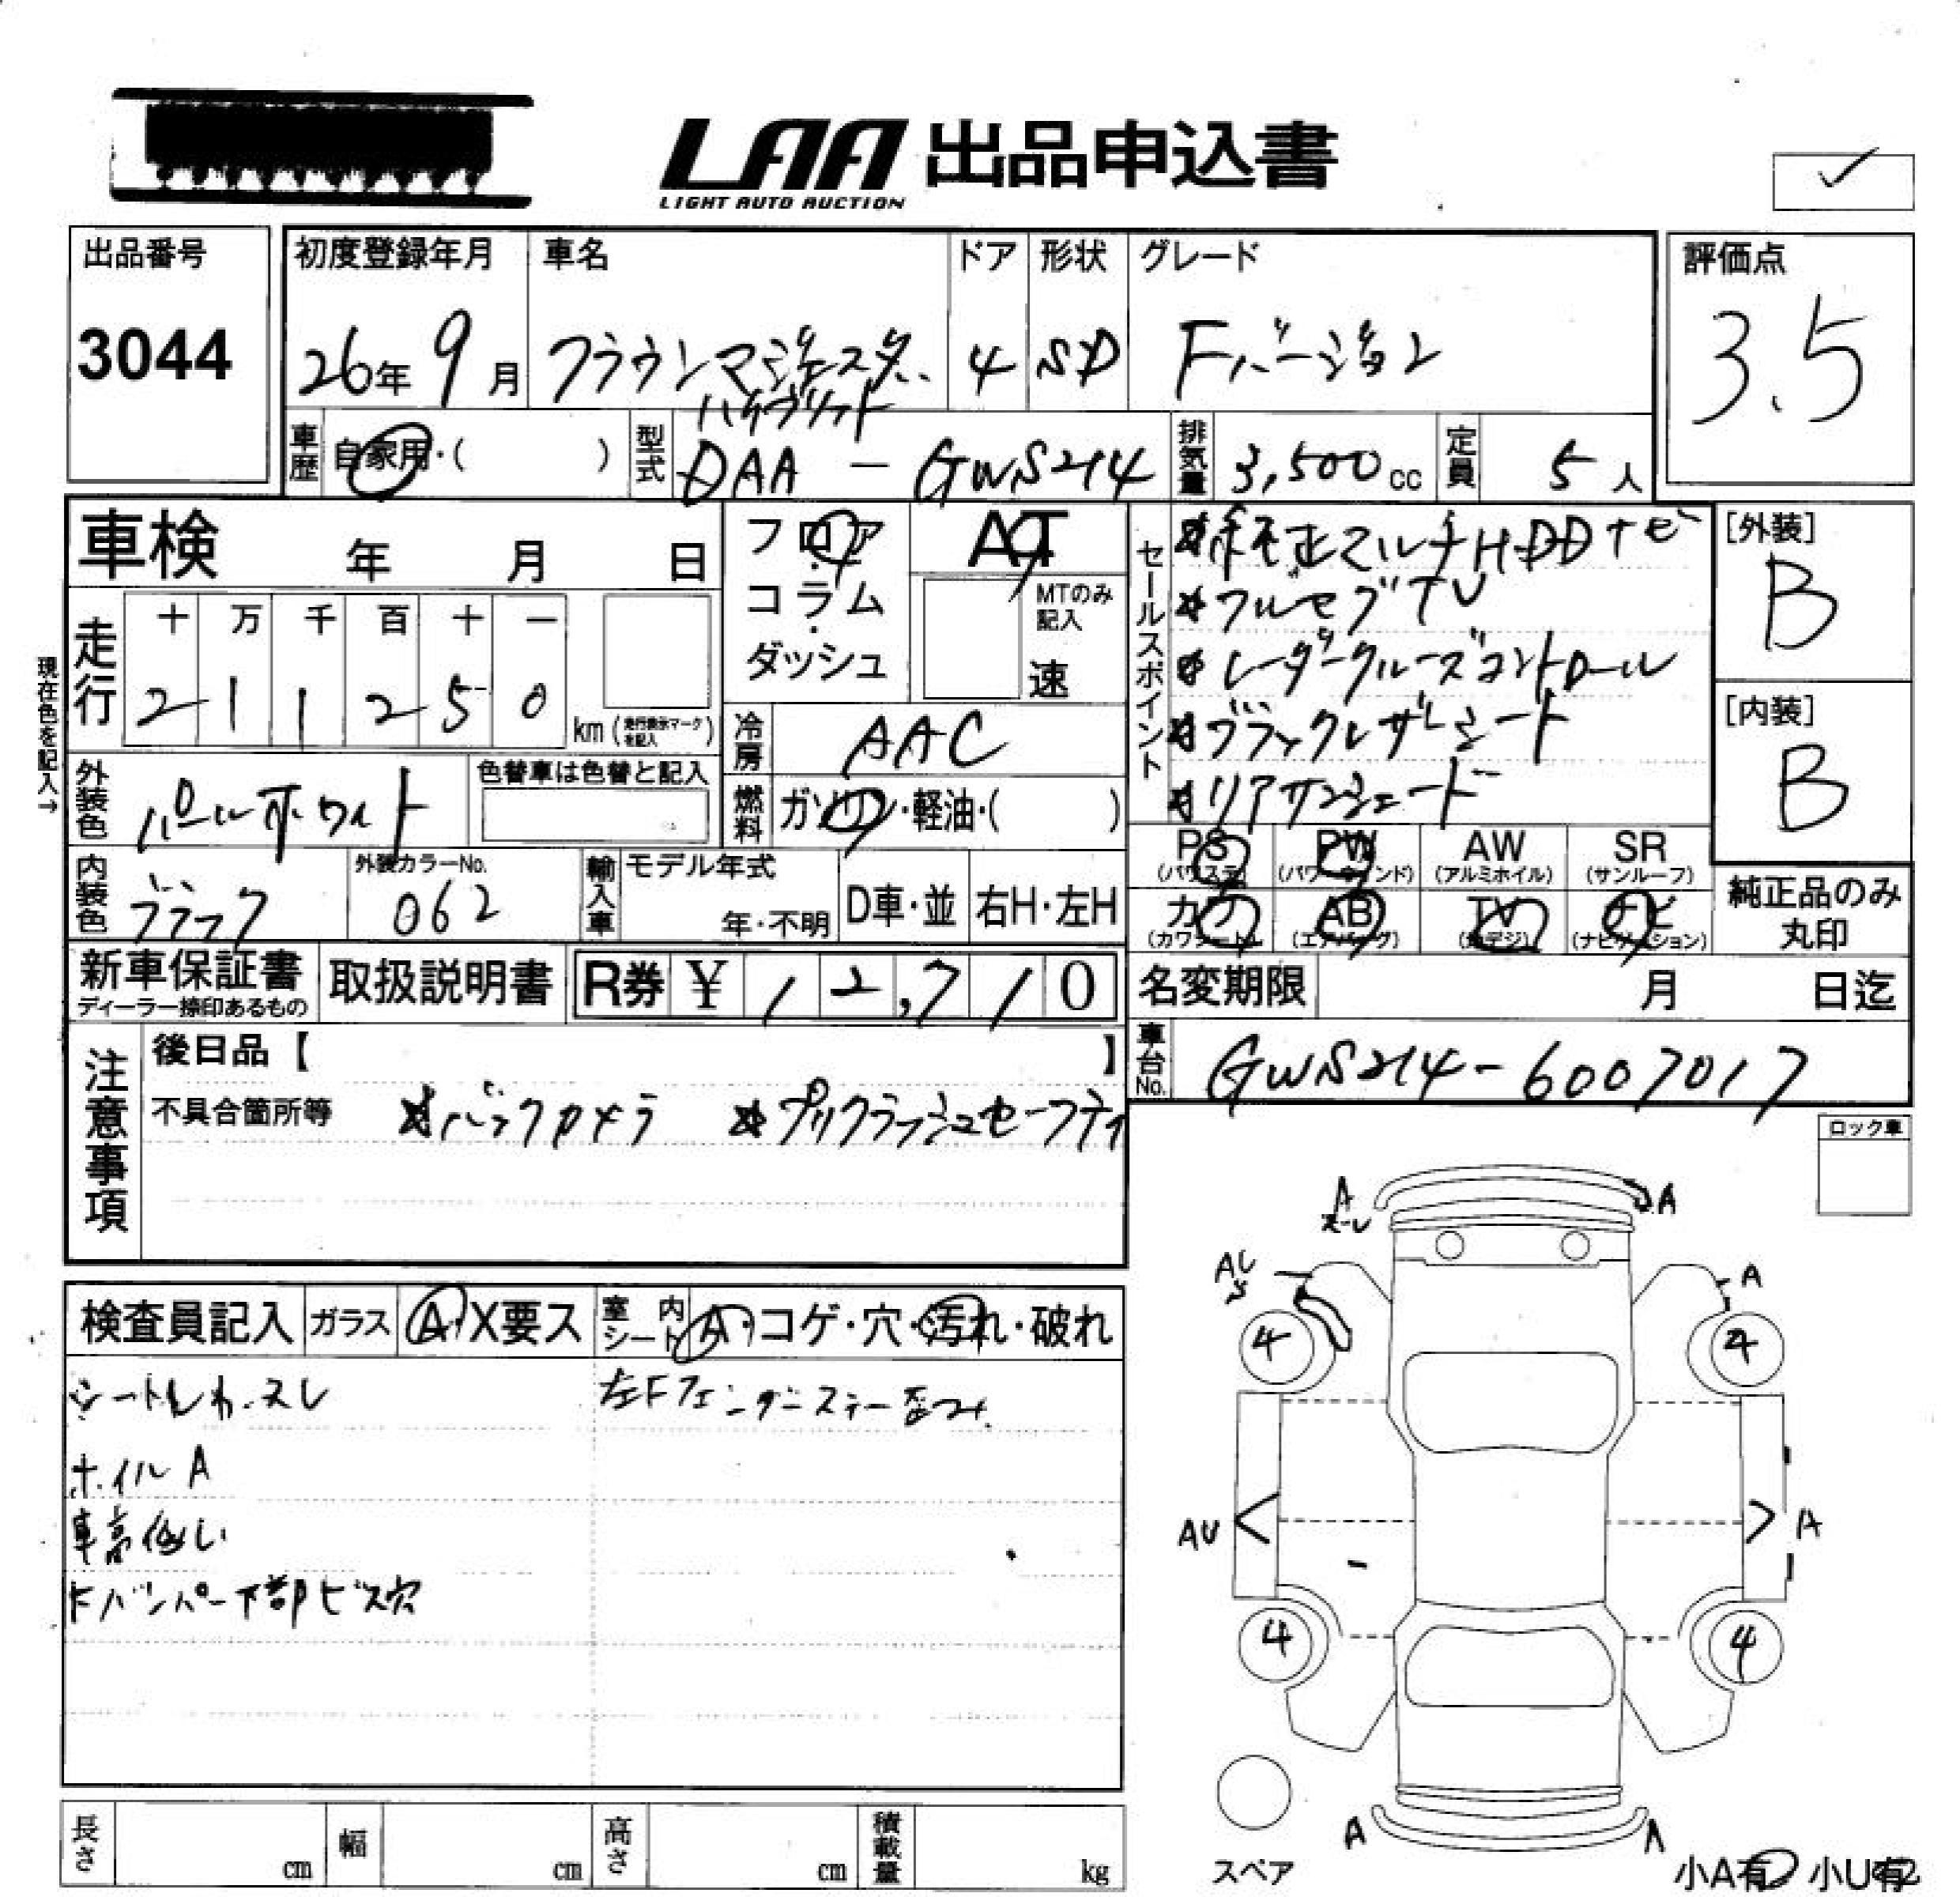 LAA 出品申込書
LIGHT AUTO AUCTION
出品番号 初度登録年月 車名 ドア 形状 グレード 評価点
3044 26年 9月 クラウンマジェスタ 4 SD Fバージョン 3.5
ハイブリッド
車歴 自家用・( ) 型式 DAA - GWS214 排気量 3,500cc 定員 5人
車検 年 月 日 フロア・コラム・ダッシュ AT
MTのみ記入 速
走行 十 万 千 百 十 一
2 1 1 2 5 0 km (走行表示マークを記入)
現在色を記入→
セールスポイント
*純正マルチHDDナビ
*フルセグTV
*レーダークルーズコントロール
*ブラックレザーシート
*リアサンシェード
[外装]
B
[内装]
B
冷房 AAC
外装色 パールホワイト 色替車は色替と記入
燃料 ガソリン・軽油・( )
内装色 ブラック 外装カラーNo. 062 輸入車 モデル年式 年・不明 D車・並 右H・左H
PS (パワステ) PW (パワーウインド) AW (アルミホイル) SR (サンルーフ)
カワ (カワシート) AB (エアバッグ) TV (地デジ) ナビ (ナビゲーション)
純正品のみ
丸印
新車保証書 取扱説明書 R券 ¥ 12,710 名変期限 月 日迄
ディーラー捺印あるもの
注意事項 後日品【 】
車台No. GWS214-6007017
不具合箇所等 *バックカメラ *プリクラッシュセーフティ
ロック車
検査員記入 ガラス A・X要ス 室内シート A・コゲ・穴・汚れ・破れ
シートしわ・スレ 左Fフェンダーステー歪み
ホイルA
車高低い
Fバンパー下部ビス穴
A A
スレ
AU A
4 4
AU A
4 4
A A
スペア
小A有 小U有
長さ cm 幅 cm 高さ cm 積載量 kg